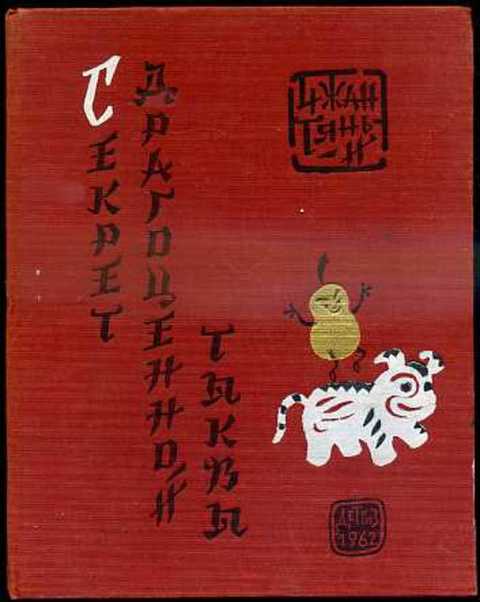 СЕКРЕТ
ДРАГОЦЕННОЙ
ТЫКВЫ
ЧЖАН
ТЯНЬ
И
ДЕТГИЗ
1962